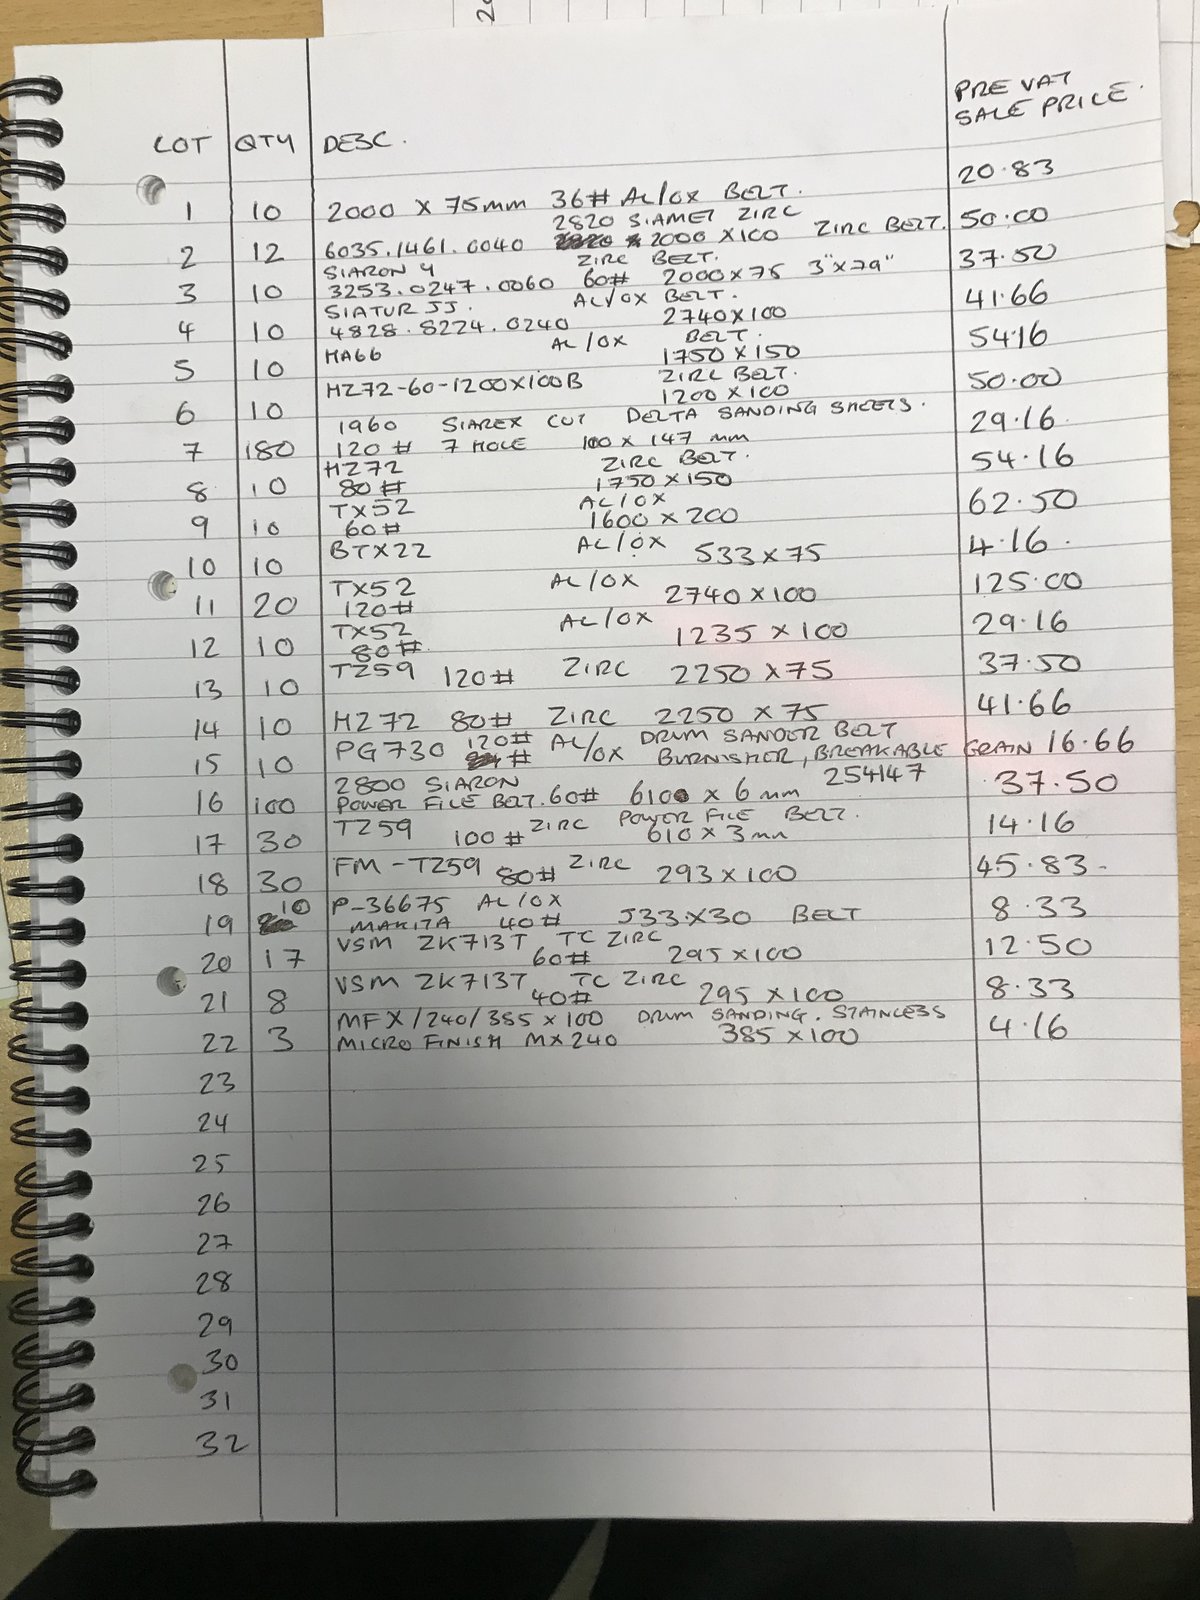 PRE VAT
SALE PRICE.
LOT QTY DESC.
1 10 2000 X 75mm 36# AL/OX BELT. 20.83
2820 SIAMET ZIRC
2 12 6035.1461.0040 2000 X100 ZIRC BELT. 50.00
SIARON 4 ZIRC BELT.
3 10 3253.0247.0060 60# 2000X75 3"X79" 37.50
SIATUR JJ. AL/OX BELT.
4 10 4828.8224.0240 2740X100 41.66
HA66 AL/OX BELT.
5 10 1750X150 5416
HZ72-60-1200X100B ZIRC BELT.
6 10 1200 X 100 50.00
1960 SIAREX CUT DELTA SANDING SHEETS.
7 180 120# 7 HOLE 100 X 147 mm 29.16
HZ72 ZIRC BELT.
8 10 80# 1750X150 54.16
TX52 AL/OX
9 10 60# 1600 X 200 62.50
10 10 BTX22 AL/OX 533X75 4.16.
TX52 AL/OX
11 20 120# 2740X100 125.00
TX52 AL/OX
12 10 80# 1235 X 100 29.16
13 10 TZ59 120# ZIRC 2250 X75 37.50
14 10 HZ72 80# ZIRC 2250 X 75 41.66
120# DRUM SANDER BELT
15 10 PG730 # AL/OX BURNISHER, BREAKABLE GRAIN 16.66
2800 SIARON 254147
16 100 POWER FILE BELT. 60# 610 X 6mm 37.50
TZ59 ZIRC POWER FILE BELT.
17 30 100# 610 X 3mm 14.16
18 30 FM-TZ59 80# ZIRC 293X100 45.83-
10 P-36675 AL/OX
19 MAKITA 40# 533X30 BELT 8.33
VSM ZK713T TC ZIRC
20 17 60# 295X100 12.50
VSM ZK713T TC ZIRC
21 8 40# 295 X100 8.33
MFX/240/385X100 DRUM SANDING. STAINLESS
22 3 MICRO FINISH MX240 385X100 4.16
23
24
25
26
27
28
29
30
31
32